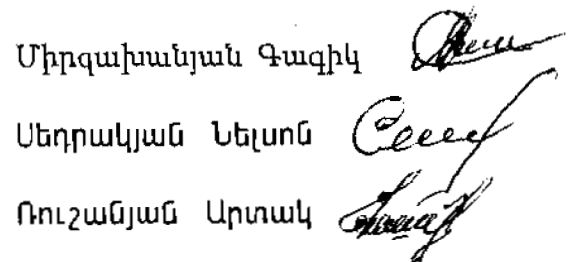 Միրզախանյան Գագիկ
Սեդրակյան Նելսոն
Ռուշանյան Արտակ